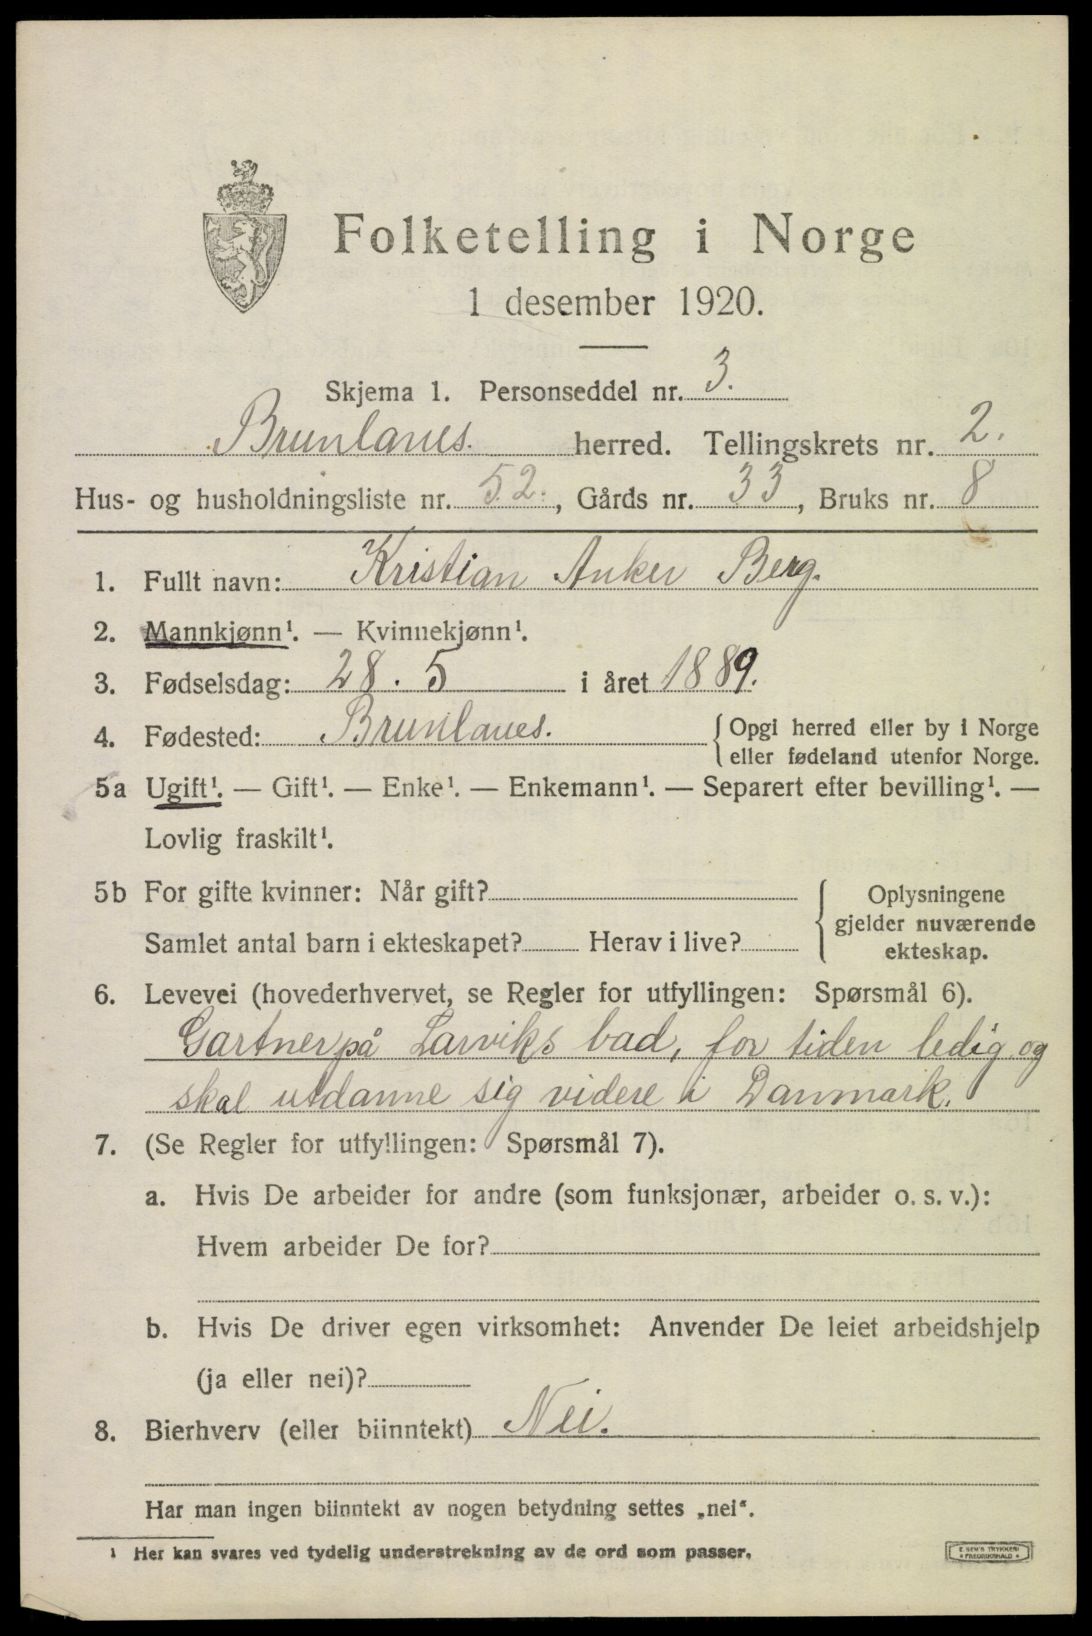 Folketelling i Norge
1 desember 1920.
Skjema 1. Personseddel nr. 3.
Brunlanes. herred. Tellingskrets nr. 2.
Hus- og husholdningsliste nr. 52., Gårds nr. 33, Bruks nr. 8
1. Fullt navn: Kristian Anker Berg.
2. Mannkjønn¹. — Kvinnekjønn¹.
3. Fødselsdag: 28. 5 i året 1889.
4. Fødested: Brunlanes. { Opgi herred eller by i Norge
eller fødeland utenfor Norge.
5a Ugift¹. — Gift¹. — Enke¹. — Enkemann¹. — Separert efter bevilling¹. —
Lovlig fraskilt¹.
5b For gifte kvinner: Når gift? { Oplysningene
gjelder nuværende
Samlet antal barn i ekteskapet? Herav i live?
ekteskap.
6. Levevei (hovederhvervet, se Regler for utfyllingen: Spørsmål 6).
Gartner på Larviks bad, for tiden ledig og
skal utdanne sig videre i Danmark.
7. (Se Regler for utfyllingen: Spørsmål 7).
a. Hvis De arbeider for andre (som funksjonær, arbeider o. s. v.):
Hvem arbeider De for?
b. Hvis De driver egen virksomhet: Anvender De leiet arbeidshjelp
(ja eller nei)?
8. Bierhverv (eller biinntekt) Nei.
Har man ingen biinntekt av nogen betydning settes „nei“.
¹ Her kan svares ved tydelig understrekning av de ord som passer.
E. SEM'S TRYKKERI
FREDRIKSHALD